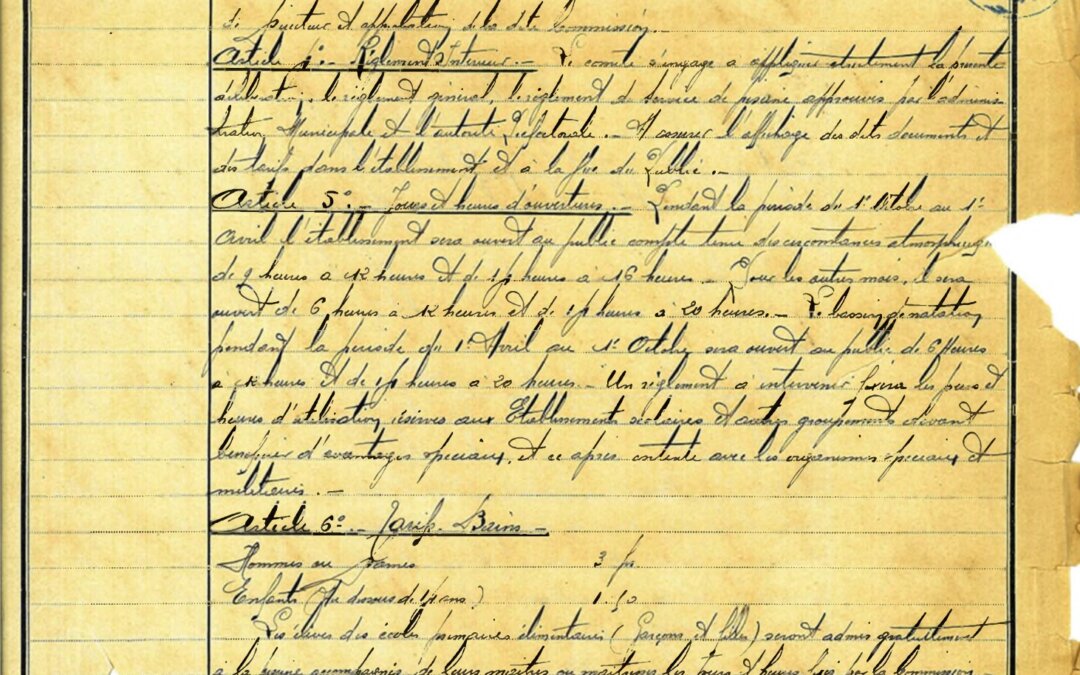 de Directeur et approbation de la dite Commission. -
Article 4° - Règlement Intérieur. - Le comité s'engage à appliquer strictement la présente
délibération, le règlement général, le règlement de service de piscine approuvés par l'adminis-
tration Municipale et l'autorité Préfectorale. - A assurer l'affichage des dits documents et
des tarifs dans l'établissement et à la vue du Public. -
Article 5° - Jours et heures d'ouvertures. - Pendant la période du 1° Octobre au 1°
Avril l'établissement sera ouvert au public compte tenu des circonstances atmosphériques
de 9 heures à 12 heures et de 14 heures à 16 heures. - Pour les autres mois, il sera
ouvert de 6 heures à 12 heures et de 14 heures à 20 heures. - Le bassin de natation
pendant la période du 1° Avril au 1° Octobre sera ouvert au public de 6 Heures
à 12 heures et de 14 heures à 20 heures. - Un règlement à intervenir fixera les jours et
heures d'utilisation réservés aux Etablissements scolaires et autres groupements devant
bénéficier d'avantages spéciaux, et ce après entente avec les organismes spéciaux et
militaires. -
Article 6° - Tarifs - Bains -
Hommes ou Dames 3 frs
Enfants (au dessous de 14 ans) 1.50
Les élèves des écoles primaires élémentaires (Garçons et filles) seront admis gratuitement
à la piscine accompagnés de leurs maîtres ou maîtresses les jours et heures fixés par la Commission -